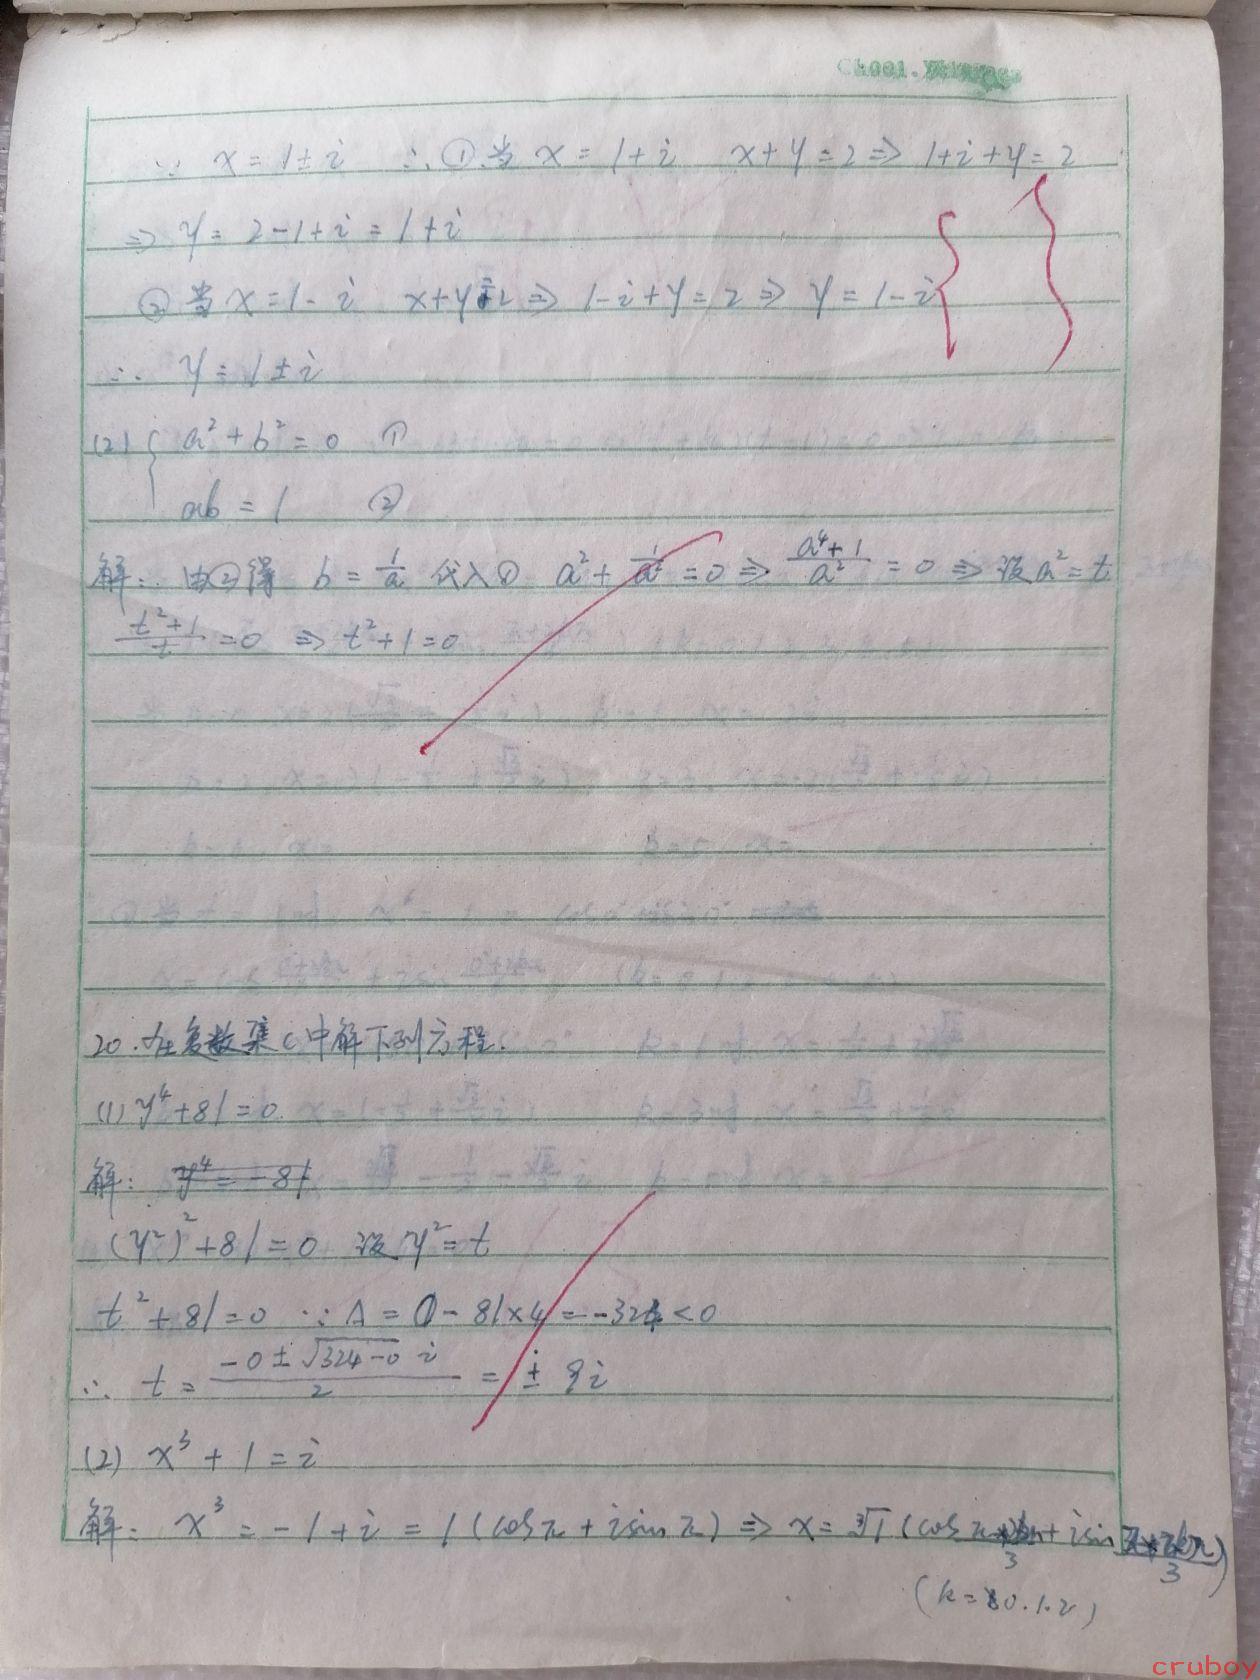 ∵ x = 1±i ∴ ① 当 x = 1+i x+y=2 ⇒ 1+i+y=2
⇒ y = 2-1+i = 1+i
② 当 x=1-i x+y=2 ⇒ 1-i+y=2 ⇒ y=1-i
∴ y=1±i
(2) { a²+b²=0 ①
ab=1 ②
解: 由②得 b=1/a 代入① a²+1/a²=0 ⇒ (a⁴+1)/a²=0 ⇒ 设a²=t
(t²+1)/t=0 ⇒ t²+1=0
20.在复数集C中解下列方程.
(1) y⁴+81=0.
解: y⁴=-81
(y²)²+81=0 设y²=t
t²+81=0 ∵ Δ=0-81×4=-324<0
∴ t=(-0±√(324-0) i)/2 = ±9i
(2) x³+1=i
解: x³=-1+i=1(cosπ+isinπ) ⇒ x=³√1(cos (π+2kπ)/3+isin (π+2kπ)/3)
(k=0.1.2)
cruboy